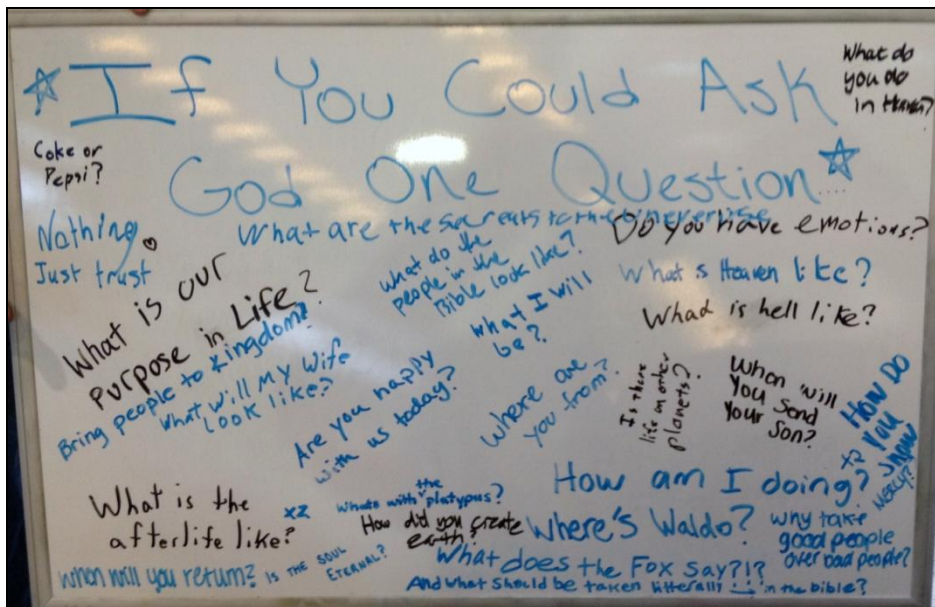 If You Could Ask
God One Question....
What do
you do
in Heaven?
Coke or
Pepsi?
Nothing.
Just trust
What are the
Do you have emotions?
What do the
people in the
Bible look like?
What s Heaven like?
What is hell like?
What is our
Purpose in Life?
Bring people to Kingdom?
What I will
be?
What will My Wife
Look like?
Are you happy
with us today?
Where are
you from?
Is there
life on other
planets?
When will
You Send
Your Son?
HOW DO
YOU
x2
How am I doing?
What is the
afterlife like?
x2
Whats with the platypus?
How did you create
earth?
Where's Waldo?
why take
good people
over bad people?
When will you return?
IS THE SOUL
ETERNAL?
What does the Fox say?!?
And what should be taken litterally in the bible?